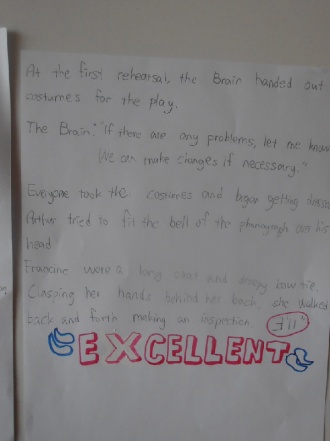 At the first rehearsal, the Brain handed out
costumes for the play.
The Brain: "If there are any problems, let me know
We can make changes if necessary."
Everyone took the costumes and began getting dressed
Arthur tried to fit the bell of the phonograph over his
head
Francine wore a long coat and bow tie.
Clasping her hands behind her back, she walked
back and forth making an inspection
EXCELLENT